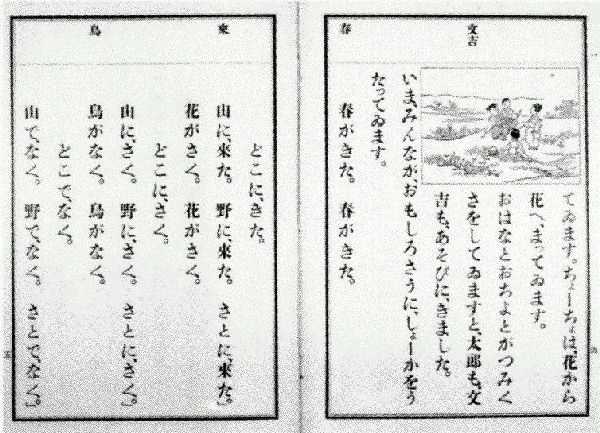 文吉
春
てゐます。ちょーちょは、花から
花へ、まってゐます。
おはなとおちよとがつみく
さをしてゐますと、太郎も、文
吉も、あそびに、きました。
いま、みんなが、おもしろさうに、しょーかをう
たってゐます。
春がきた。 春がきた。
來
鳥
どこに、きた。
山に、來た。 野に、來た。 さとに、來た。」
花がさく。 花がさく。
どこに、さく。
山に、さく。 野に、さく。 さとに、さく。」
鳥がなく。 鳥がなく。
どこで、なく。
山で、なく。 野で、なく。 さとで、なく。」